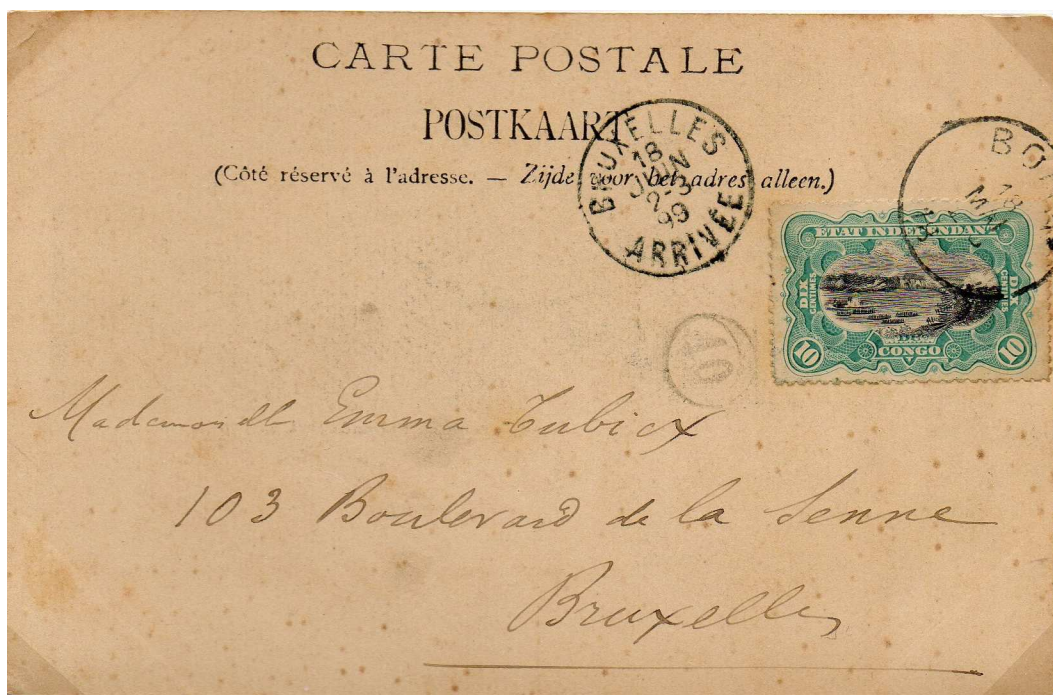 CARTE POSTALE
POSTKAART
(Côté réservé à l'adresse. — Zijde voor het adres alleen.)
BRUXELLES
18
JUIN
2-3
99
ARRIVÉE
18
ETAT INDEPENDANT
DIX CENTIMES
DIX CENTIMES
DU
CONGO
10
10
Mademoiselle Emma
103 Boulevard de la Senne
Bruxelles